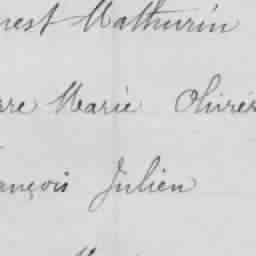 nest Mathurin
rre Marie Olivier
ançois Julien